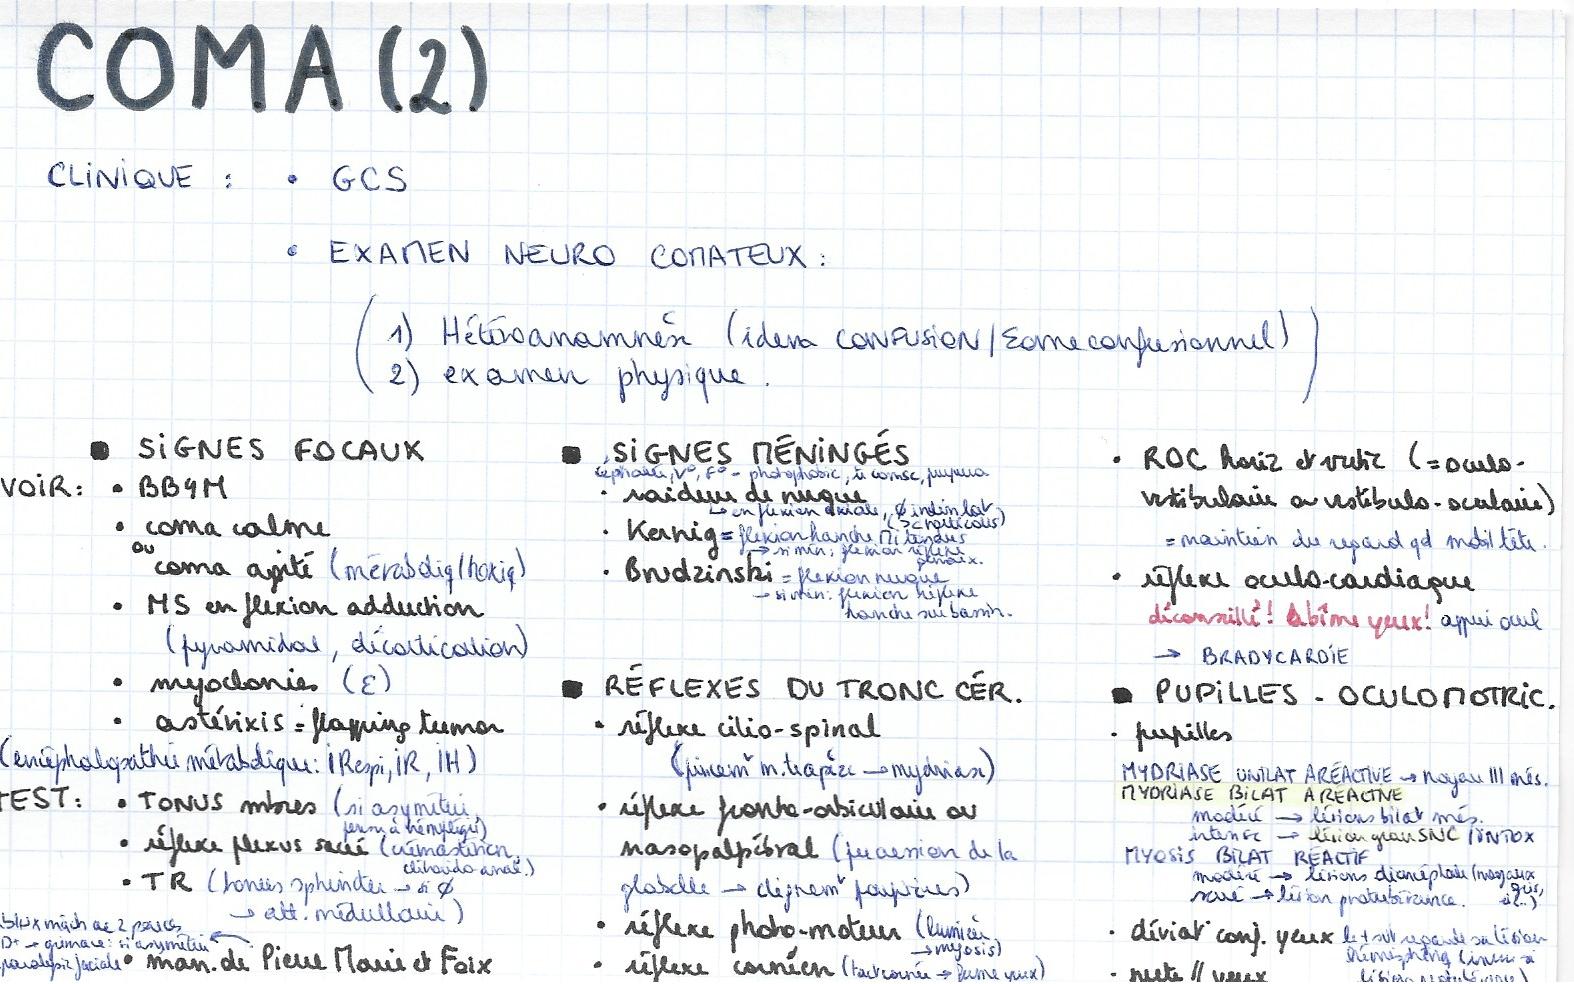 COMA (2)
CLINIQUE : • GCS
• EXAMEN NEURO COMATEUX :
1) Hétéroanamnèse (idem CONFUSION/Σome confusionnel)
2) examen physique.
■ SIGNES FOCAUX
VOIR : • BB4M
• coma calme
ou
coma agité (métaboliq/toxiq)
• MS en flexion adduction
(pyramidal, décortication)
• myoclonies (ε)
• astérixis = flapping tremor
(encéphalopathie métabolique : IRespi, IR, IH)
TEST : • TONUS mbres (si asymétrie,
penser à hémiplégie)
• réflexe plexus sacré (crémastérien,
clitorido-anal.)
• TR (tonus sphincter → si ∅
→ att. médullaire)
mâch de 2 pouces
→ grimace : si asymétrie
paralysie faciale • man. de Pierre Marie et Foix
■ SIGNES MÉNINGÉS
céphalée, V°, F° - photophobie, tr consc, purpura
• raideur de nuque
↳ en flexion axiale, ∅ inclin lat
(>< torticolis)
• Kernig = flexion hanche MI tendus
→ si mén : flexion réflexe
genoux.
• Brudzinski = flexion nuque
→ si mén : flexion réflexe
hanche sur bassin.
■ RÉFLEXES DU TRONC CÉR.
• réflexe cilio-spinal
(pincemt m. trapèze → mydriase)
• réflexe fronto-orbiculaire ou
nasopalpébral (percussion de la
glabelle → clignemt paupières)
• réflexe photo-moteur (lumière
→ myosis)
• réflexe cornéen (tact cornée → ferme yeux)
• ROC horiz et vertic (= oculo-
vestibulaire ou vestibulo-oculaire)
= maintien du regard qd mobil tête.
• réflexe oculo-cardiaque
déconseillé ! Abîme yeux ! appui ocul
→ BRADYCARDIE
■ PUPILLES - OCULOMOTRIC.
• pupilles
MYDRIASE UNILAT ARÉACTIVE → noyau III més.
MYDRIASE BILAT ARÉACTIVE
modéré → lésions bilat més.
intense → lésion grave SNC / INTOX
MYOSIS BILAT RÉACTIF
modéré → lésions diencéphale (noyaux
gris,
serré → lésion protubérance.
• déviat° conj. yeux le + svt regarde sa lésion
hémisphérique (inverse si
lésion protubérance)
• perte // yeux